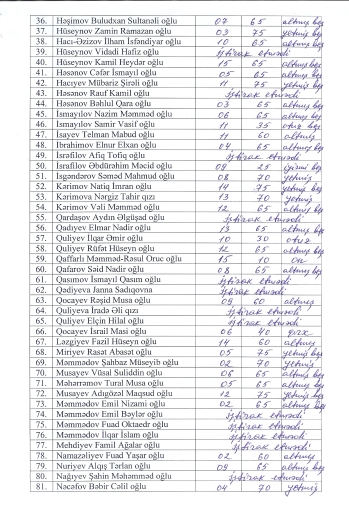 36. Həşimov Buludxan Sultanəli oğlu 07 65 altmış beş
37. Hüseynov Zamin Ramazan oğlu 03 75 yetmiş beş
38. Hacı-Əzizov İlham İsfəndiyar oğlu 10 65 altmış beş
39. Hüseynov Vidadi Hafiz oğlu iştirak etmədi
40. Hüseynov Kamil Heydər oğlu 15 65 altmış beş
41. Həsənov Cəfər İsmayıl oğlu 05 65 altmış beş
42. Hacıyev Mübariz Şirəli oğlu 11 75 yetmiş beş
43. Həsənov Rauf Kamil oğlu iştirak etmədi
44. Həsənov Bəhlul Qara oğlu 03 65 altmış beş
45. İsmayılov Nazim Məmməd oğlu 06 65 altmış beş
46. İsmayılov Samir Vasif oğlu 11 35 otuz beş
47. İsayev Telman Mabud oğlu 11 60 altmış
48. İbrahimov Elnur Elxan oğlu 04 65 altmış beş
49. İsrafilov Afiq Tofiq oğlu iştirak etmədi
50. İsrafilov Əbdürəhim Məcid oğlu 09 25 iyirmi beş
51. İsgəndərov Səməd Mahmud oğlu 08 70 yetmiş
52. Kərimov Natiq İmran oğlu 14 75 yetmiş beş
53. Kərimova Nərgiz Tahir qızı 13 70 yetmiş
54. Kərimov Vəli Məmməd oğlu 12 65 altmış beş
55. Qardaşov Aydın Əlgüşad oğlu iştirak etmədi
56. Qədiyev Elmar Nadir oğlu 13 65 altmış beş
57. Quliyev İlqar Əmir oğlu 10 30 otuz
58. Quliyev Rüfət Hüseyn oğlu 12 65 altmış beş
59. Qəffarlı Məmməd-Rəsul Oruc oğlu 15 10 on
60. Qəfarov Səid Nadir oğlu 08 65 altmış beş
61. Qasımov İsmayıl Qasım oğlu iştirak etmədi
62. Qədiyeva Janna Sadıqovna iştirak etmədi
63. Qocayev Rəşid Musa oğlu 09 60 altmış
64. Quliyeva İradə Əli qızı iştirak etmədi
65. Quliyev Elçin Hilal oğlu iştirak etmədi
66. Qocayev İsrail Masi oğlu 06 40 qırx
67. Ləzgiyev Fazil Hüseyn oğlu 14 60 altmış
68. Miriyev Rasat Abasət oğlu 05 75 yetmiş beş
69. Məmmədov Şahbaz Müseyib oğlu 02 70 yetmiş
70. Musayev Vüsal Suliddin oğlu 06 65 altmış beş
71. Məhərrəmov Tural Musa oğlu 05 65 altmış beş
72. Musayev Adıgözəl Maqsud oğlu 12 75 yetmiş beş
73. Məmmədov Emil Nizami oğlu 02 65 altmış beş
74. Məmmədov Emil Bəylər oğlu iştirak etmədi
75. Məmmədov Fuad Oktaedr oğlu iştirak etmədi
76. Məmmədov İlqar İslam oğlu iştirak etmədi
77. Mehdiyev Famil Ağalar oğlu iştirak etmədi
78. Namazəliyev Fuad Yaşar oğlu 02 60 altmış
79. Nuriyev Alqış Tərlan oğlu 09 65 altmış beş
80. Nağıyev Şahin Məhəmməd oğlu iştirak etmədi
81. Nəcəfov Bəbir Cəlil oğlu 04 70 yetmiş